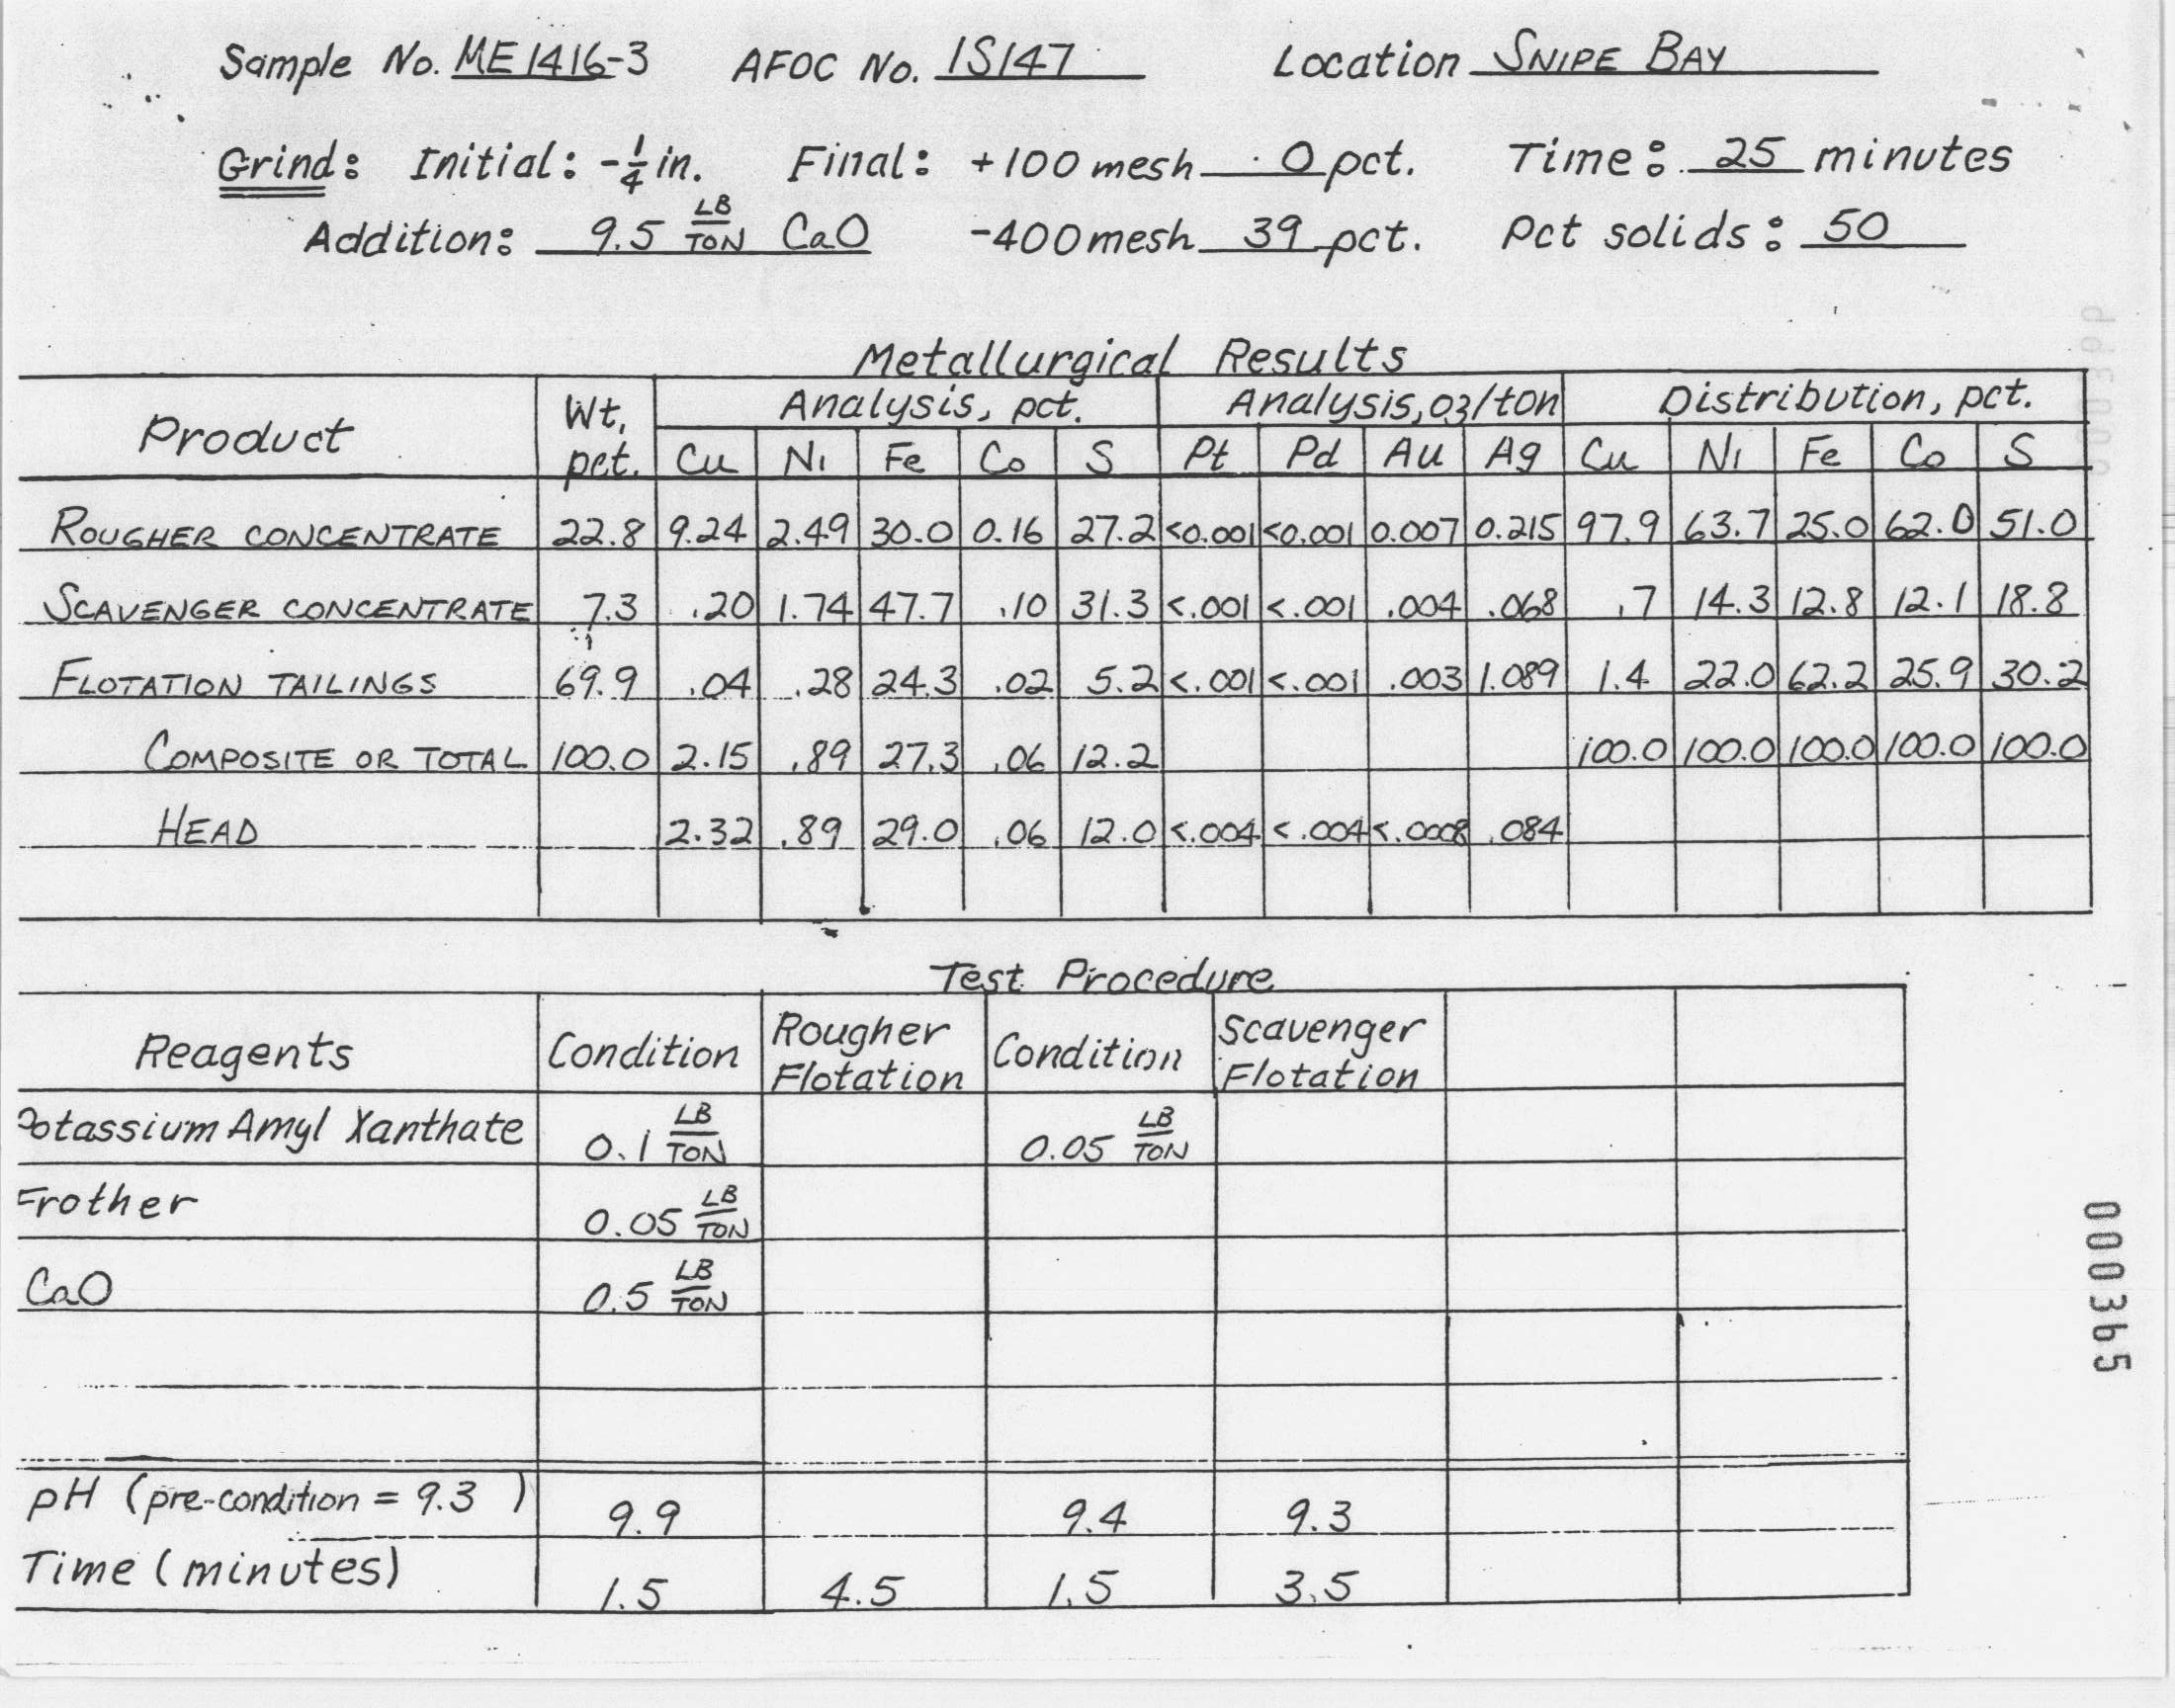 Sample No. ME 1416-3 AFOC No. IS147 Location SNIPE BAY
Grind: Initial: -1/4 in. Final: +100 mesh 0 pct. Time: 25 minutes
Addition: 9.5 LB/TON CaO -400 mesh 39 pct. Pct solids: 50
Metallurgical Results
Product Wt. pct. Analysis, pct. Analysis, oz/ton Distribution, pct.
Cu Ni Fe Co S Pt Pd Au Ag Cu Ni Fe Co S
ROUGHER CONCENTRATE 22.8 9.24 2.49 30.0 0.16 27.2 <0.001 <0.001 0.007 0.215 97.9 63.7 25.0 62.0 51.0
SCAVENGER CONCENTRATE 7.3 .20 1.74 47.7 .10 31.3 <.001 <.001 .004 .068 .7 14.3 12.8 12.1 18.8
FLOTATION TAILINGS 69.9 .04 .28 24.3 .02 5.2 <.001 <.001 .003 1.089 1.4 22.0 62.2 25.9 30.2
COMPOSITE OR TOTAL 100.0 2.15 .89 27.3 .06 12.2 100.0 100.0 100.0 100.0 100.0
HEAD 2.32 .89 29.0 .06 12.0 <.004 <.004 <.0008 .084
Test Procedure
Reagents Condition Rougher Flotation Condition Scavenger Flotation
Potassium Amyl Xanthate 0.1 LB/TON 0.05 LB/TON
Frother 0.05 LB/TON
CaO 0.5 LB/TON
pH (pre-condition = 9.3 ) 9.9 9.4 9.3
Time (minutes) 1.5 4.5 1.5 3.5
000365